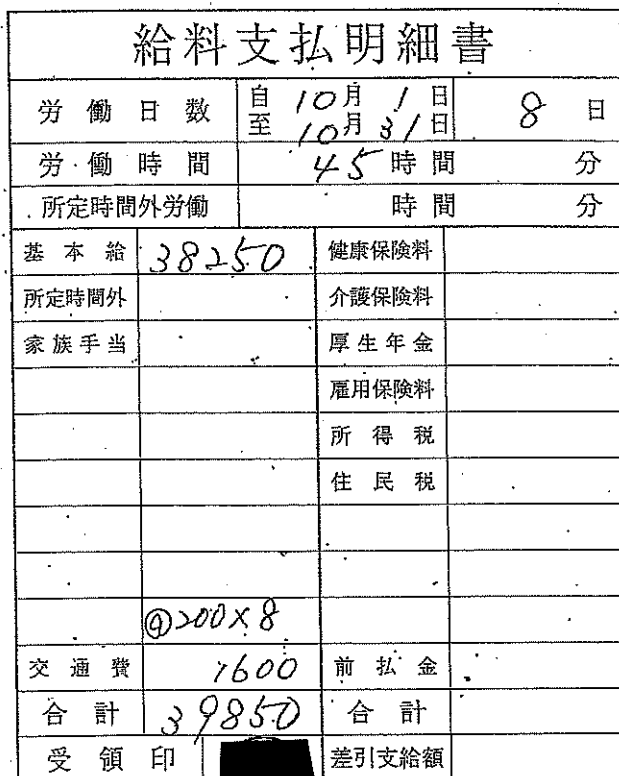 給料支払明細書
労働日数 自 10月 1日 至 10月 31日 8日
労働時間 45時間 分
所定時間外労働 時間 分
基本給 38250 健康保険料
所定時間外 介護保険料
家族手当 厚生年金
雇用保険料
所得税
住民税
@200×8
交通費 1600 前払金
合計 39850 合計
受領印 差引支給額